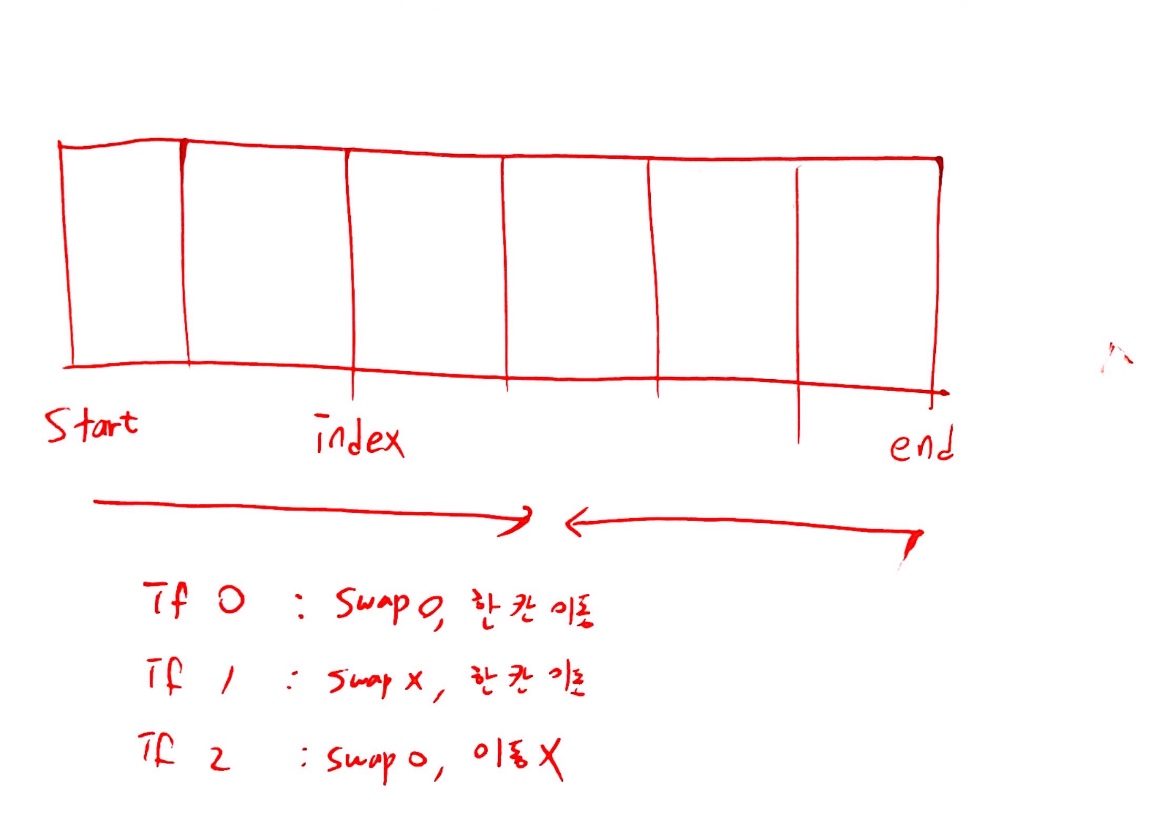 Start index end
If 0 : Swap O, 한 칸 이동
If 1 : swap X, 한 칸 이동
If 2 : swap O, 이동 X